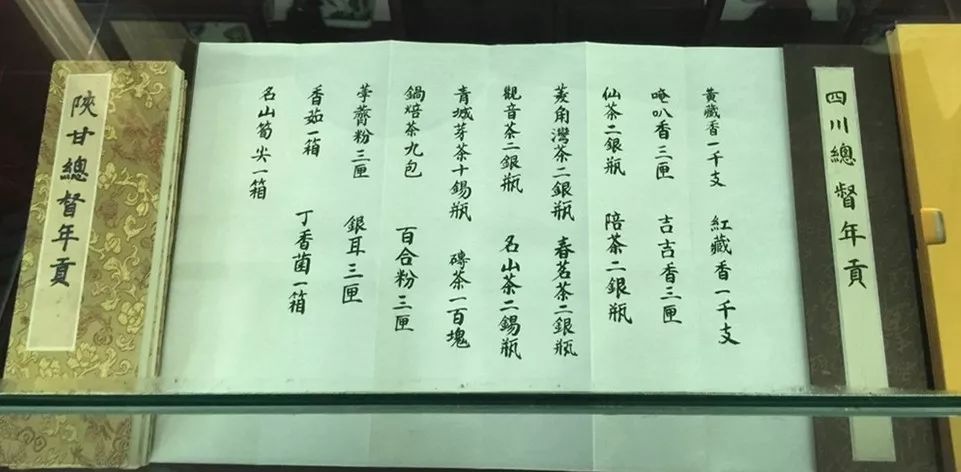 四川總督年貢
黃藏香一千支 紅藏香一千支
唵叭香三匣 吉吉香三匣
仙茶二銀瓶 陪茶二銀瓶
菱角灣茶二銀瓶 春茗茶二銀瓶
觀音茶二銀瓶 名山茶二錫瓶
青城芽茶十錫瓶 磚茶一百塊
鍋焙茶九包 百合粉三匣
荸薺粉三匣 銀耳三匣
香茹一箱 丁香菌一箱
名山筍尖一箱
陝甘總督年貢